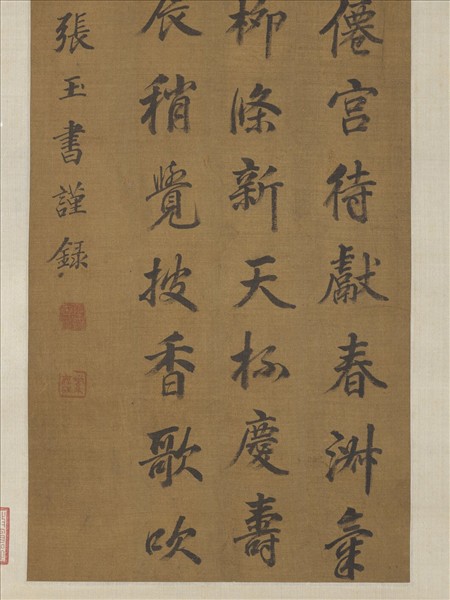 僊宮待獻春淑氣
柳條新天杯慶壽
辰稍覺披香歌吹
張玉書謹錄